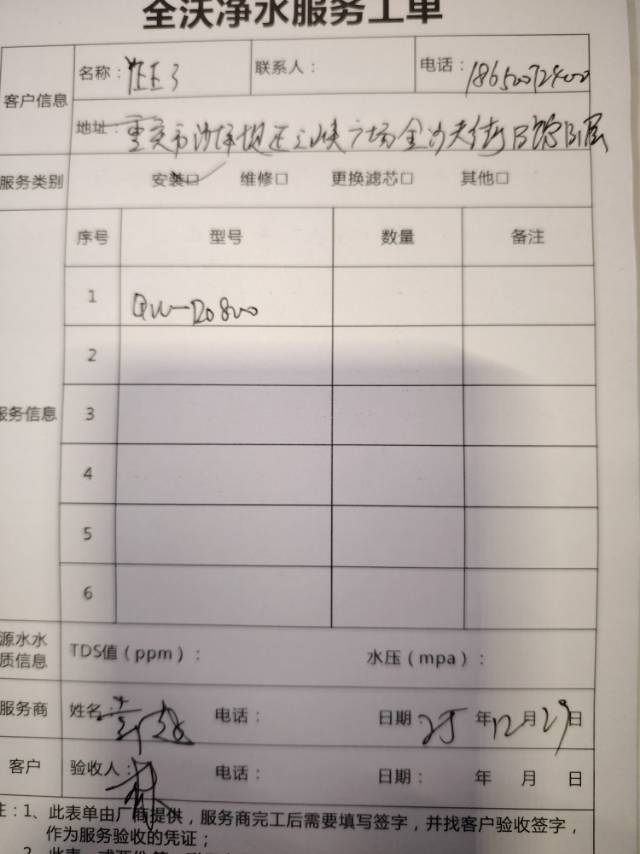 全沃净水服务工单
客户信息
名称： 联系人： 电话：18650072400
地址：重庆市沙坪坝区三峡广场金沙天街B馆B1层
服务类别 安装☑ 维修□ 更换滤芯□ 其他□
服务信息
序号 型号 数量 备注
1 QW-D0800
2
3
4
5
6
源水水质信息 TDS值（ppm）： 水压（mpa）：
服务商 姓名： 电话： 日期：25年12月29日
客户 验收人： 电话： 日期： 年 月 日
注：1、此表单由厂商提供，服务商完工后需要填写签字，并找客户验收签字，
作为服务验收的凭证；